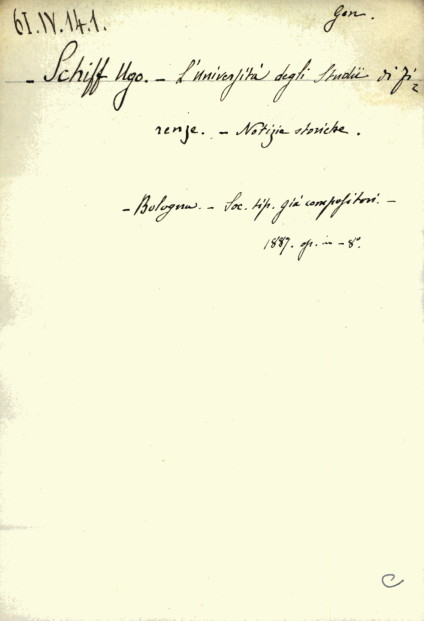 61.IV.14.1.
Gen.
- Schiff Ugo. - L'università degli Studii di Fi=
renze. - Notizie storiche.
- Bologna. - Soc. tip. già compositori. -
1887. op. in - 8º.
C